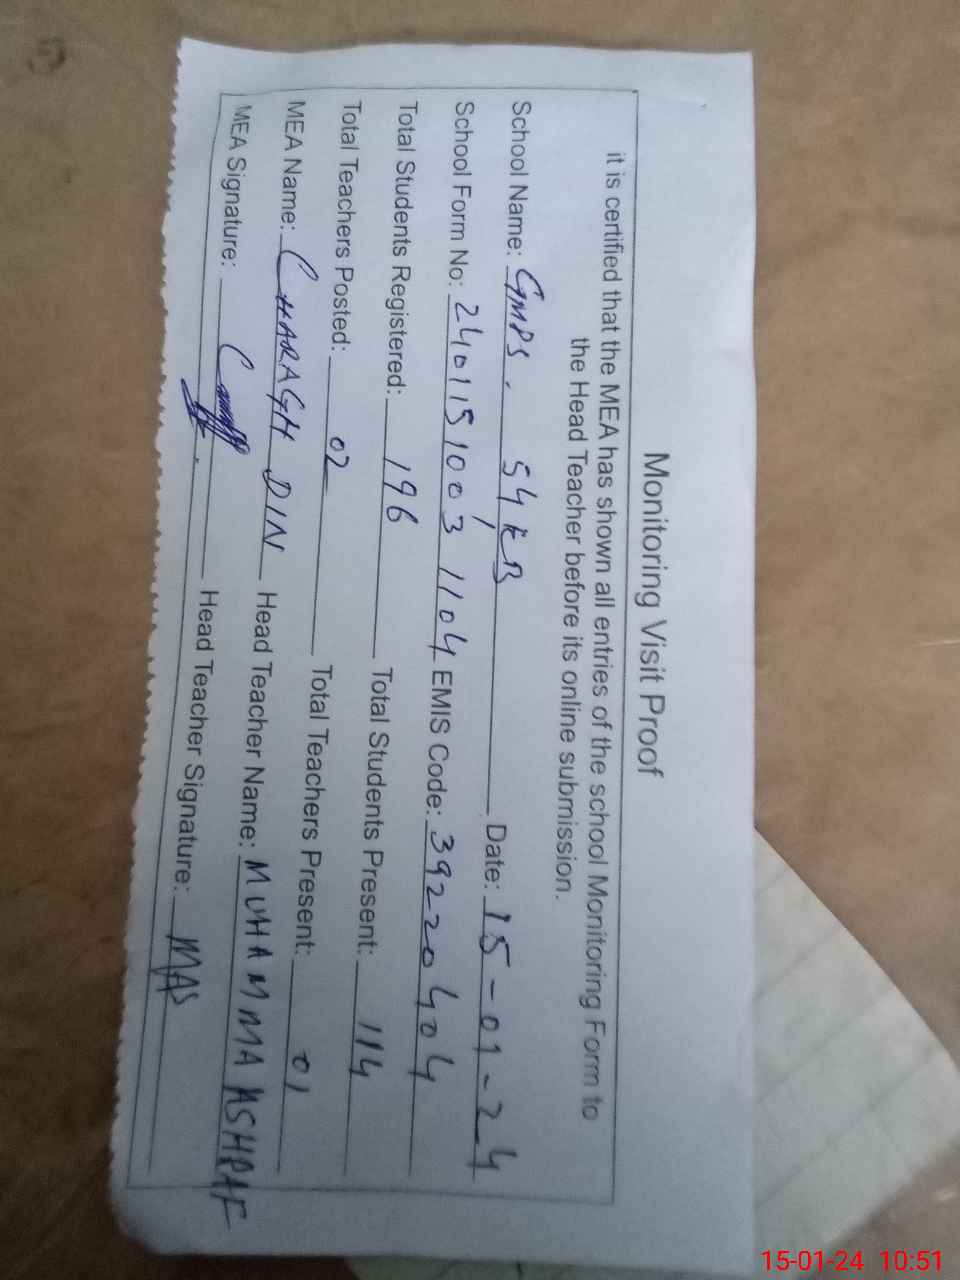 Monitoring Visit Proof
it is certified that the MEA has shown all entries of the school Monitoring Form to
the Head Teacher before its online submission.
School Name: GMPS. 54/KB Date: 15-01-24
School Form No: 2401151003 1104 EMIS Code: 39220404
Total Students Registered: 196 Total Students Present: 114
Total Teachers Posted: 02 Total Teachers Present: 01
MEA Name: CHARAGH DIN Head Teacher Name: MUHAMMA ASHRAF
MEA Signature: Head Teacher Signature: MAS
15-01-24 10:51